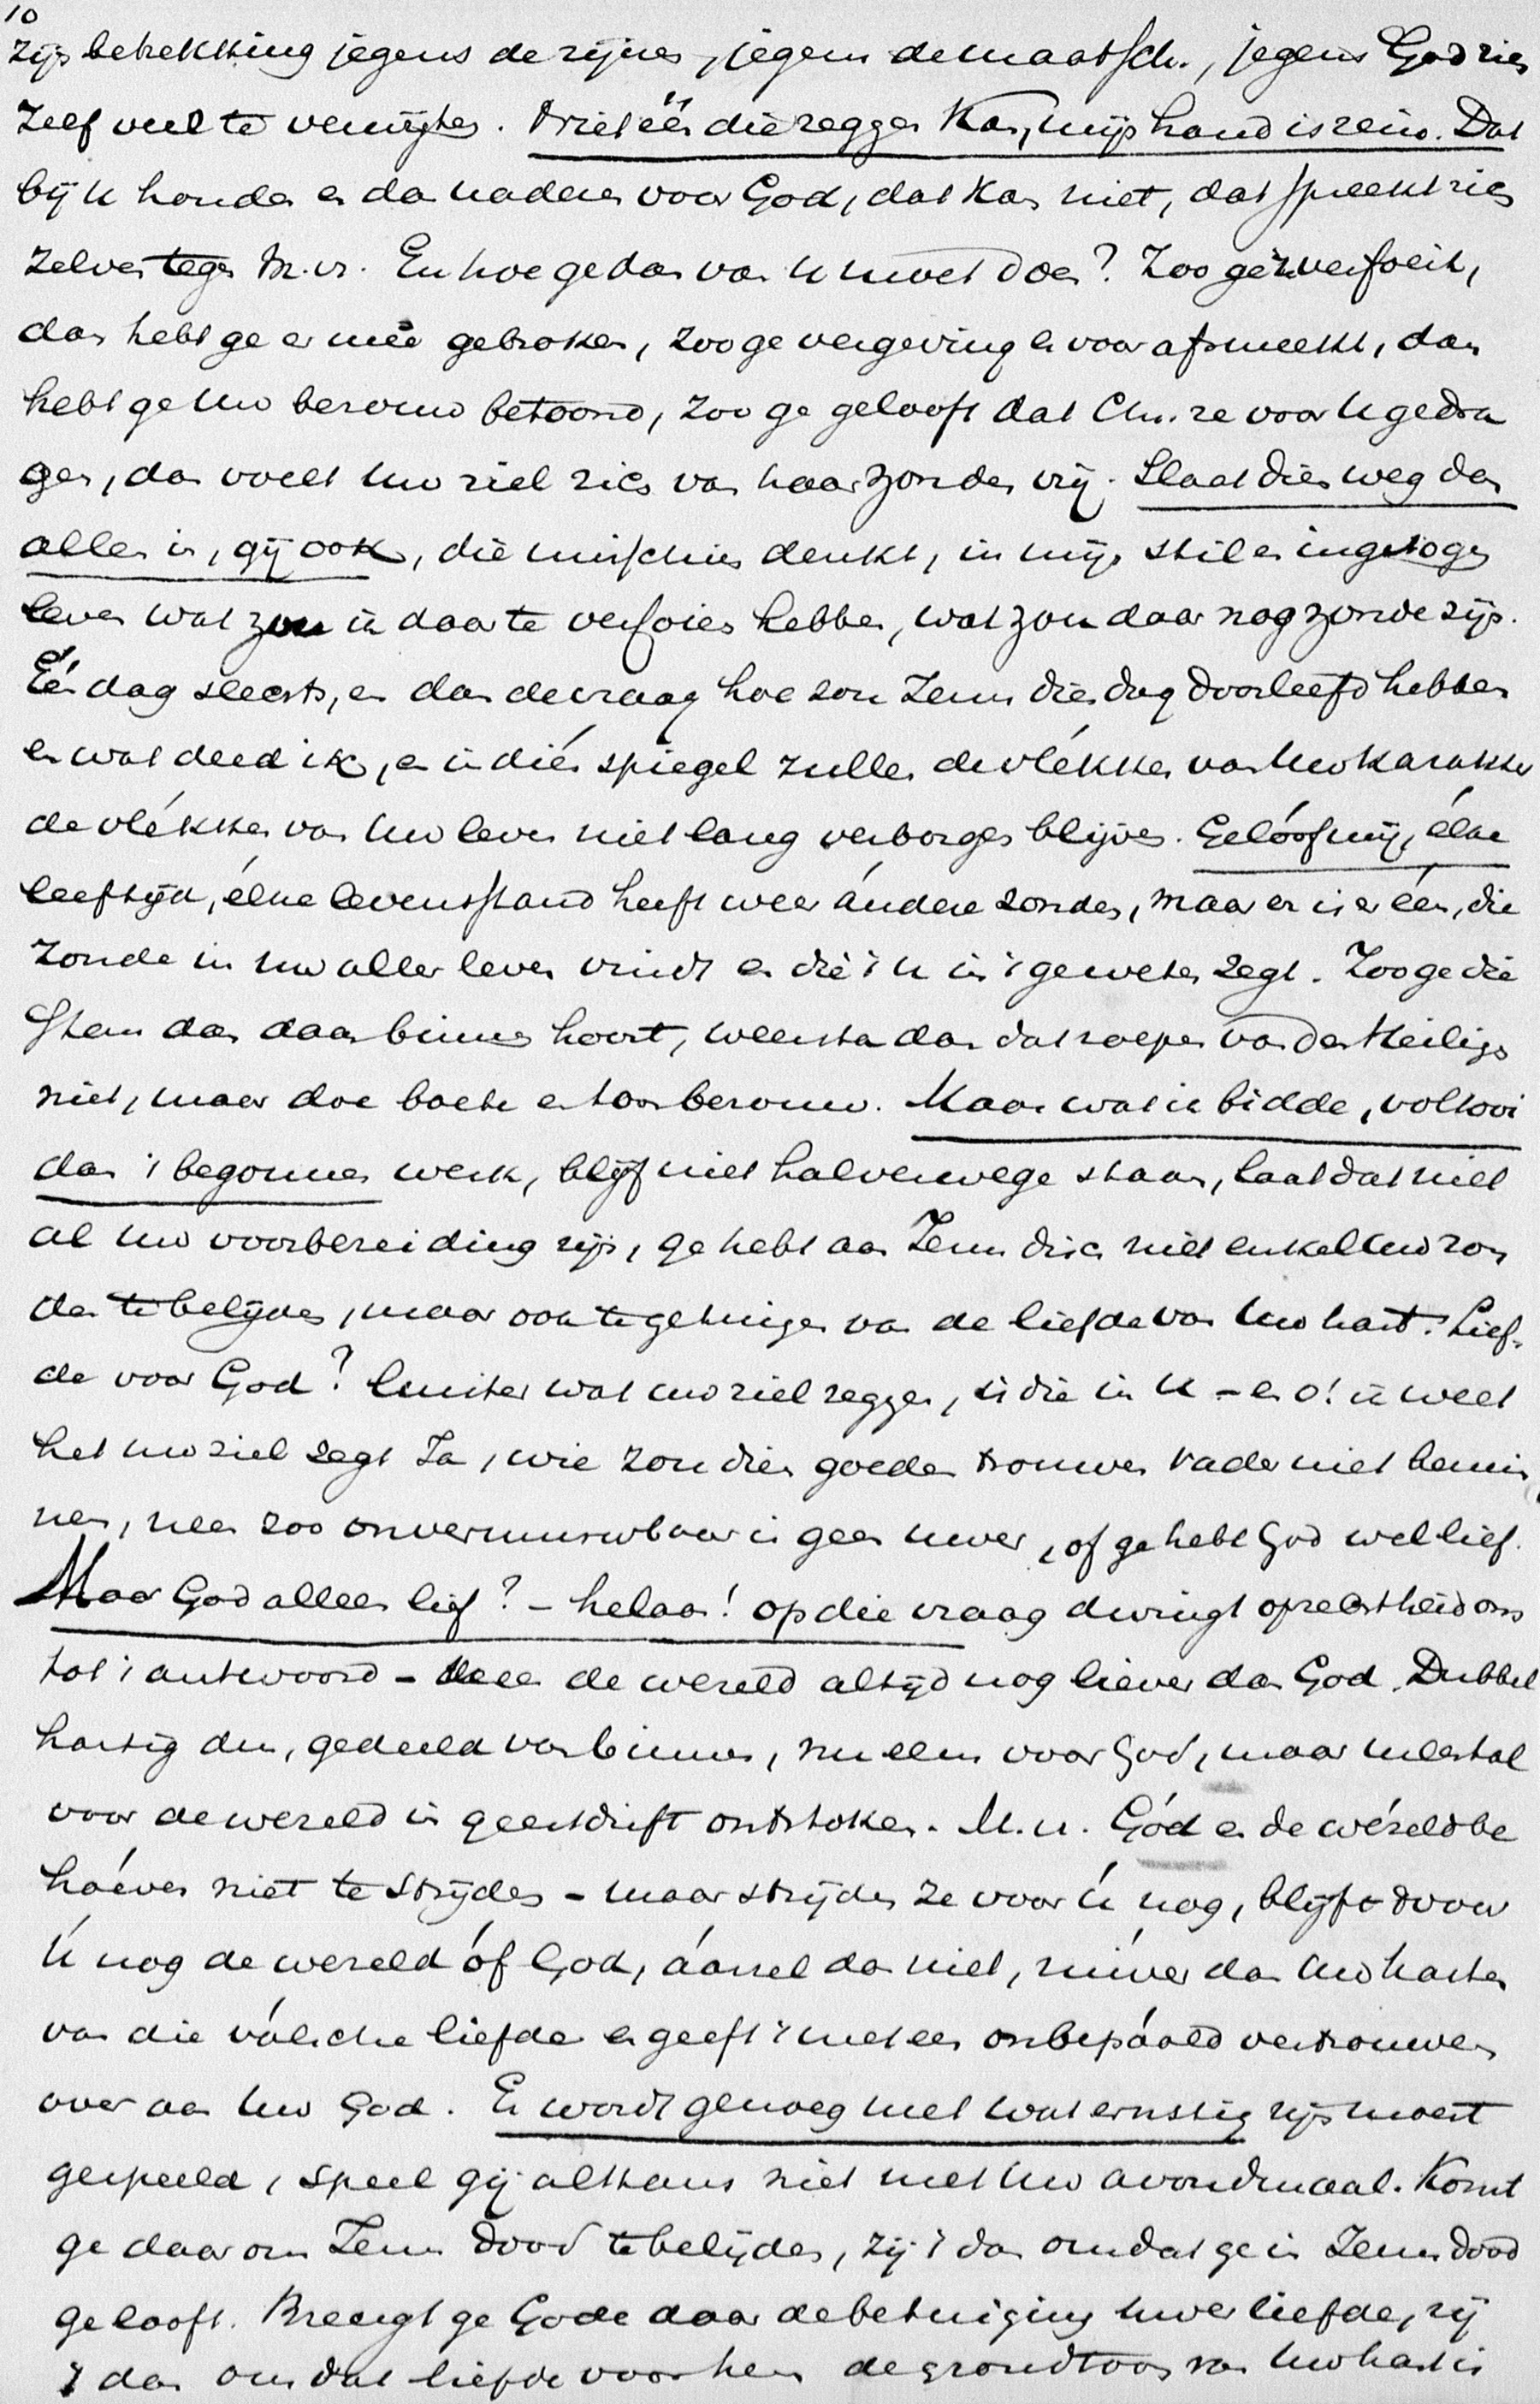 10
zijn betrekking jegens de zijnen, jegens de maatsch., jegens God zich
zelf veel te verwijten. Niet één die zeggen kan, mijn hand is rein. Dat
bij u houden en dan naderen voor God, dat kan niet, dat spreekt zich
zelven tegen M.V. En hoe ge dan van u moet doen? Zoo ge 't verfoeit,
dan hebt ge er meê gebroken, zoo ge vergeving er voor afsmeekt, dan
hebt ge uw berouw betoond, zoo ge gelooft dat Chr. ze voor u gedra
gen, dan voelt uw ziel zich van haar zonden vrij. Slaat dien weg dan
allen in, gij ook, die misschien denkt, in mijn stil en ingetogen
leven wat zou ik daar te verfoien hebben, wat zou daar nog zonde zijn.
Eén dag slechts, en dan de vraag hoe zou Jezus dien dag doorleefd hebben
en wat deed ik, en in dién spiegel zullen de vlékken van uw karakter
de vlékken van uw leven niet lang verborgen blijven. Gelóóf mij, élke
leeftijd, élke levensstand heeft weer ándere zonden, maar er is er één, die
zonde in uw aller leven vindt en die 't u in 't geweten zegt. Zoo ge die
stem dan daar binnen hoort, weersta dan dat roepen van den Heiligen
niet, maar doe boete en toon berouw. Maar wat ik bidde, voltooi
dan 't begonnen werk, blijf niet halverwege staan, laat dat niet
al uw voorbereiding zijn, ge hebt aan Jezus disch niet enkel uw zon
den te belijden, maar ook te getuigen van de liefde van uw hart. Lief-
de voor God? Luister wat uw ziel zegge, is die in u – en o! ik weet
het uw ziel zegt Ja, wie zou dien goeden trouwen Vader niet bemin
nen, neen zoo onvermurwbaar is geen uwer, of ge hebt God wel lief.
Maar God alleen lief? – helaas! op die vraag dwingt oprechtheid ons
tot 't antwoord – Neen de wereld altijd nog liever dan God. Dubbel
hartig dus, gedeeld van binnen, nu eens voor God, maar meestal
voor de wereld in geestdrift ontstoken. M.V. Gód en de wéreld be
hóéven niet te strijden – maar strijden ze voor ú nog, blijft voor
ú nog de wereld óf God, áárzel dan niet, zúiver dan uw harten
van die válsche liefde en geeft 't met een onbepáald vertrouwen
over aan uw God. Er wordt genoeg met wat ernstig zijn moest
gespeeld, speel gij althans niet met uw avondmaal. Komt
ge daar om Jezus dood te belijden, zij 't dan omdat ge in Jezus dood
gelooft. Brengt ge Gode daar de betuiging uwer liefde, zij
't dan omdat liefde voor hem de grondtoon van uw hart is